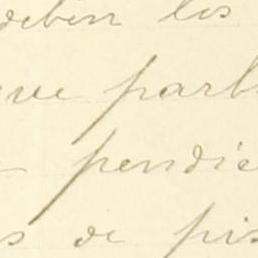 deben los
que parl
pendie
s de pis